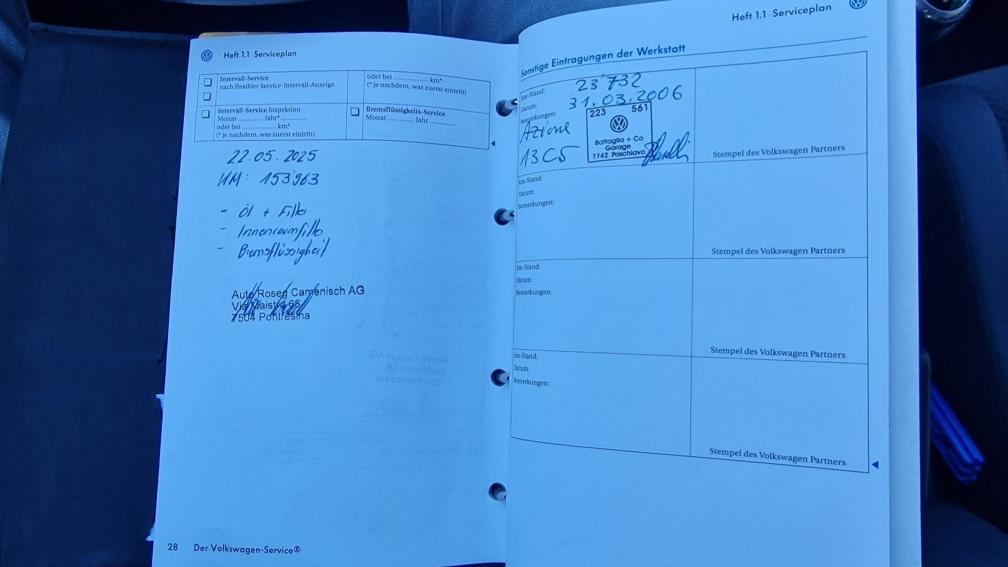 Heft 1.1 Serviceplan
Intervall-Service
nach flexibler Service-Intervall-Anzeige
oder bei .............. km*
(* je nachdem, was zuerst eintritt)
Intervall-Service Inspektion
Monat ............ Jahr* ............
oder bei .............. km*
(* je nachdem, was zuerst eintritt)
Bremsflüssigkeits-Service
Monat ............ Jahr ............
22.05.2025
KM: 153963
- Öl + Filter
- Innenraumfilter
- Bremsflüssigkeit
Auto Roseg Camenisch AG
Via Maistra 68
7504 Pontresina
28 Der Volkswagen-Service®
Heft 1.1 Serviceplan
Sonstige Eintragungen der Werkstatt
km-Stand: 23'732
Datum: 31.03.2006
Bemerkungen:
Azione
13C5
223 561
Battaglia + Co
Garage
7742 Poschiavo
Stempel des Volkswagen Partners
km-Stand:
Datum:
Bemerkungen:
Stempel des Volkswagen Partners
km-Stand:
Datum:
Bemerkungen:
Stempel des Volkswagen Partners
km-Stand:
Datum:
Bemerkungen:
Stempel des Volkswagen Partners